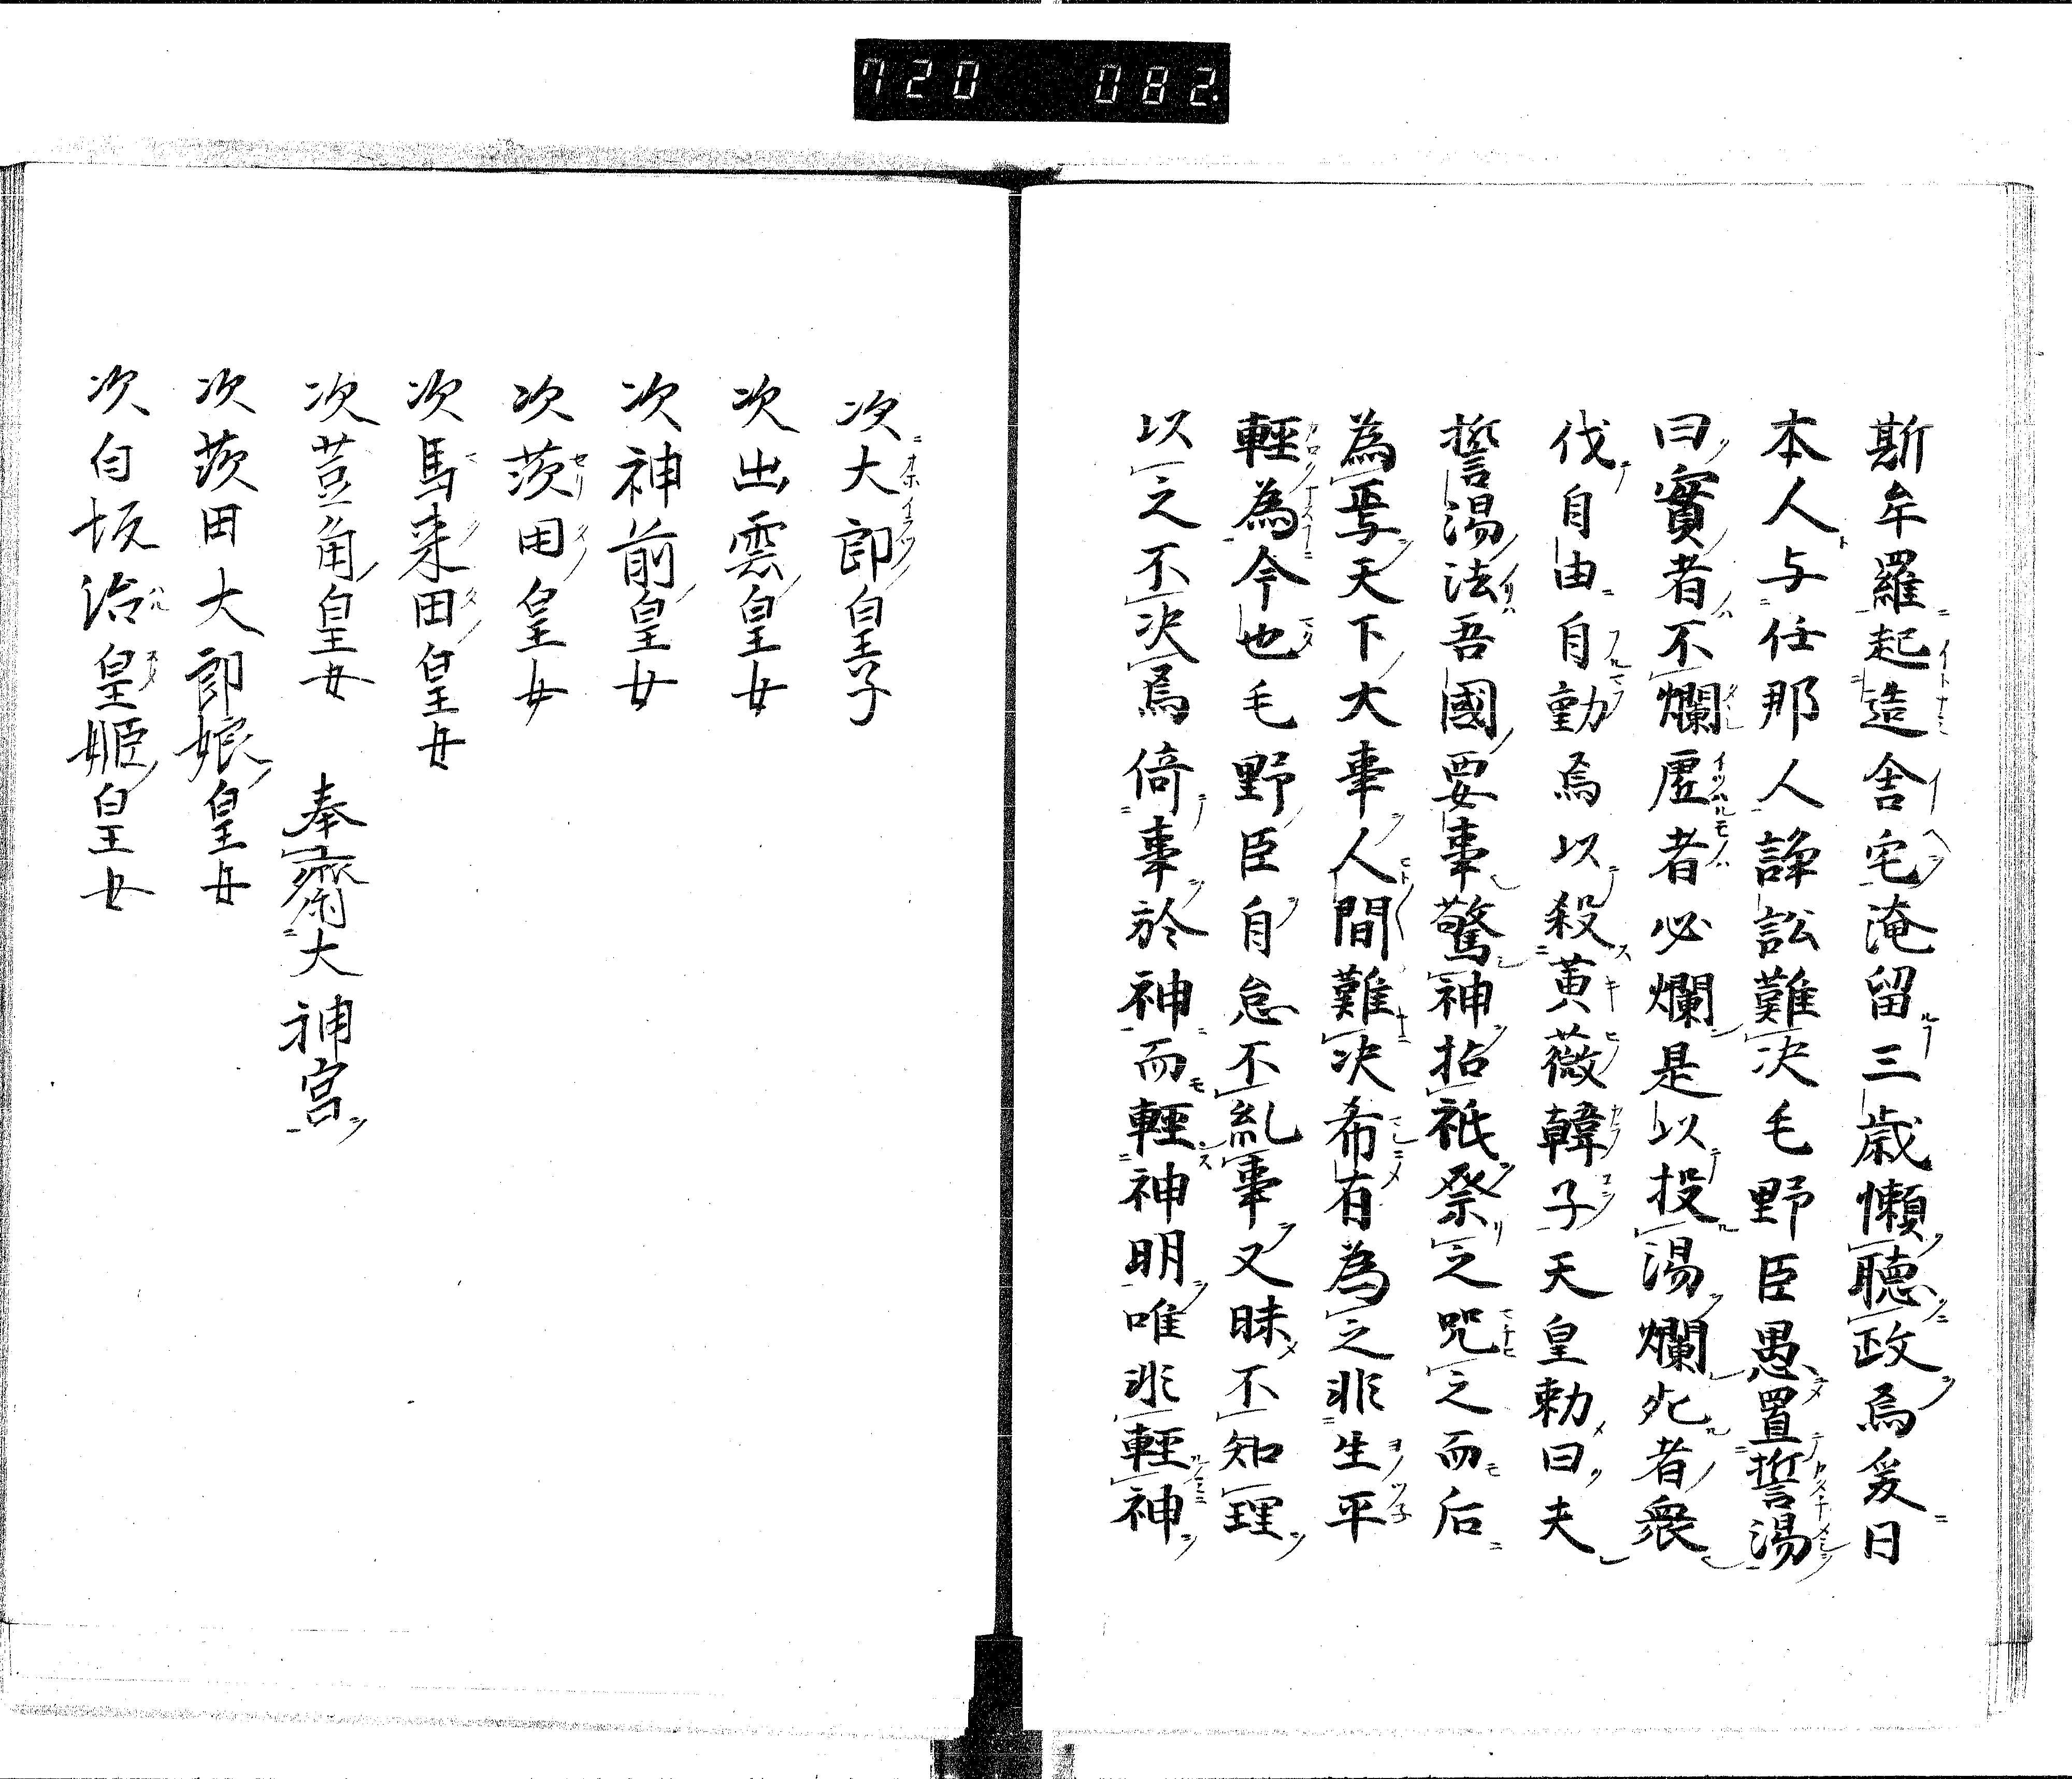 720 082
斯牟羅起造舎宅淹留三歳懶聴政焉爰日
本人与任那人諍訟難决毛野臣愚置誓湯
曰實者不爛虚者必爛是以投湯爛死者衆
伐自由自勤焉以殺黄薇韓子天皇勅曰夫
誓湯法吾國要事驚神拈祇祭之咒之而后
為焉天下大事人間難决希有為之非生平
輕為今也毛野臣自怠不乱事又昧不知理
以之不决焉倚事於神而輕神明唯非輕神
次大郎皇子
次出雲皇女
次神前皇女
次茨田皇女
次馬来田皇女
次荳角皇女 奉齋大神宮
次茨田大郎娘皇女
次白坂治皇姫皇女